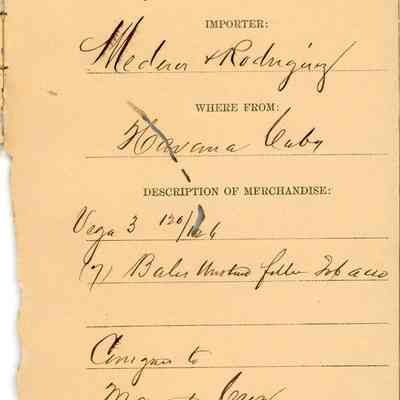 IMPORTER:
Mederos & Rodriguez
WHERE FROM:
Havana Cuba
DESCRIPTION OF MERCHANDISE:
Vega 3 120/126
(7) Bales Unstem filler Tobacco
Consigned to